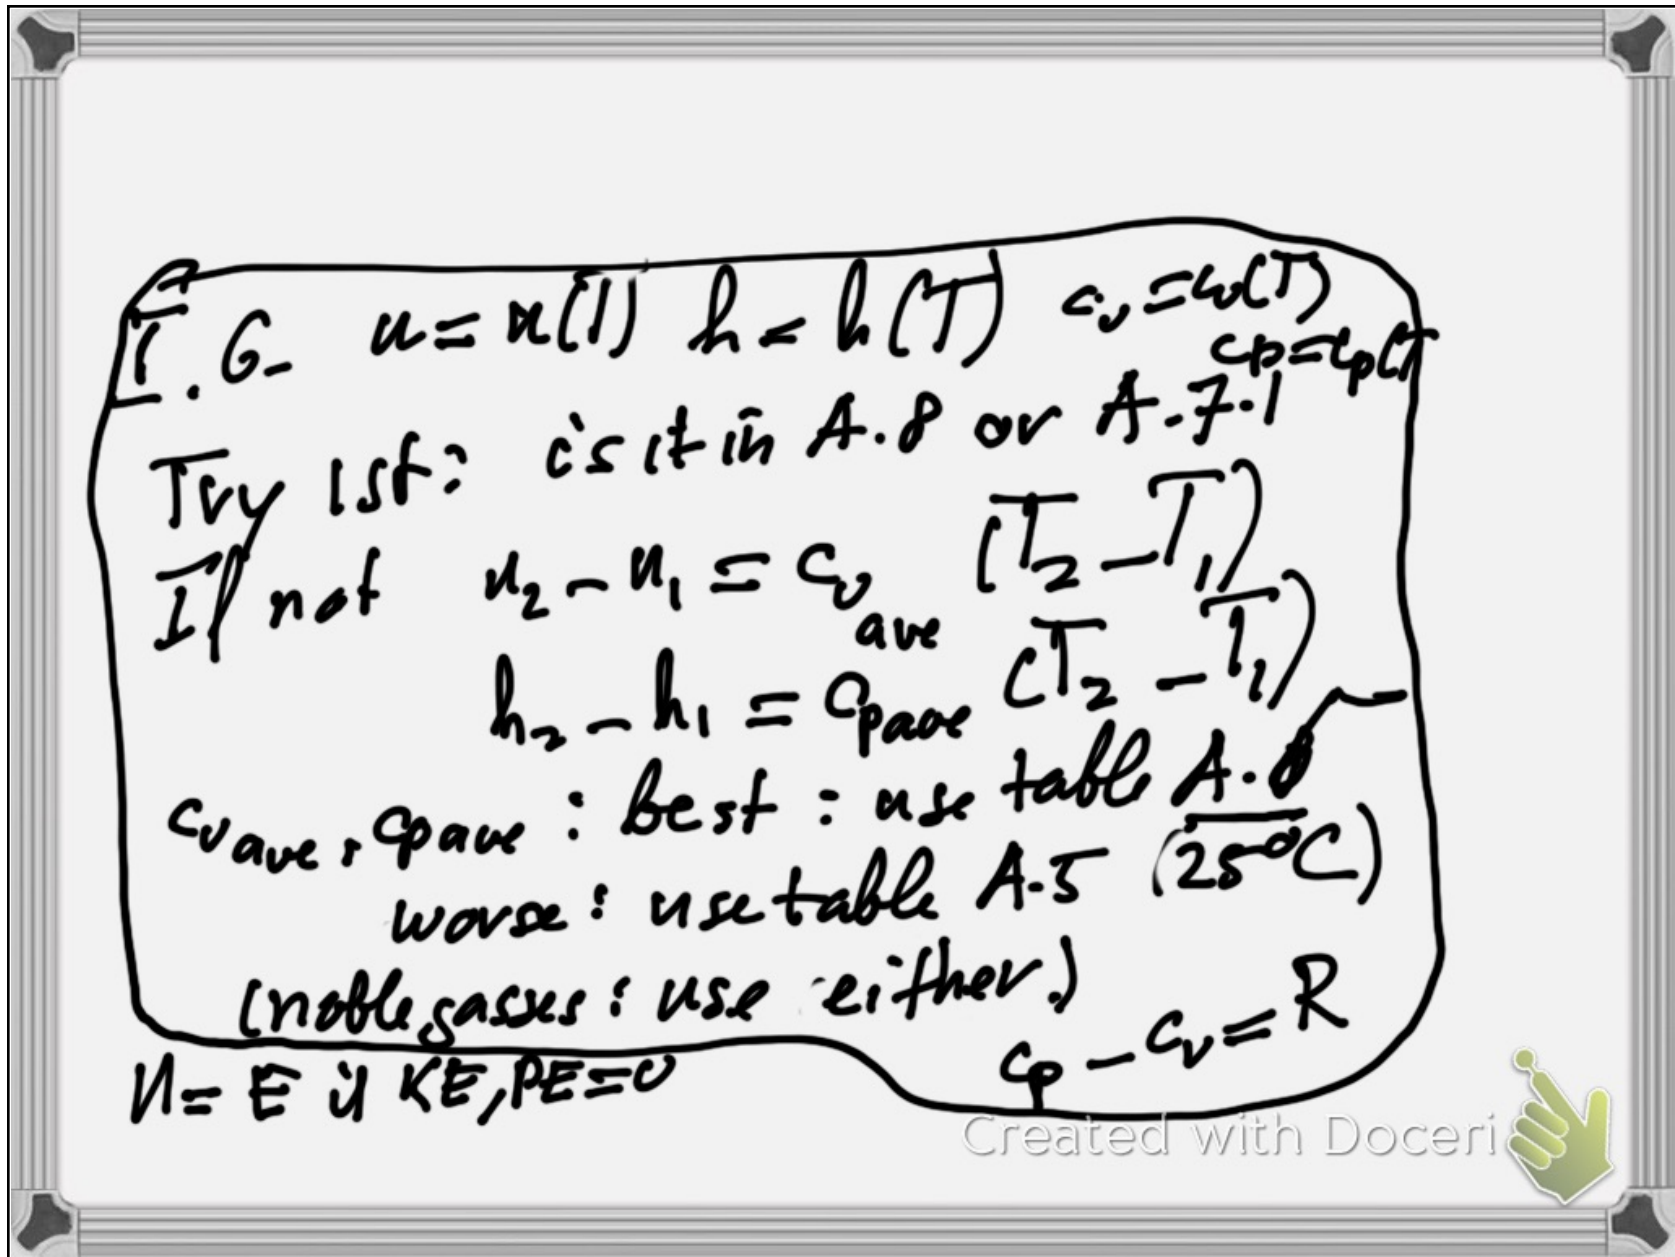 I.G. u=u(T) h=h(T) cv=cv(T)
cp=cp(T
Try 1st: is it in A.8 or A.7.1
If not u2-u1=cv ave (T2-T1)
h2-h1=cpave (T2-T1)
cvave, cpave: best: use table A.
worse: use table A.5 (25°C)
(noble gasses: use either)
cp-cv=R
U=E if KE,PE=0
Created with Doceri